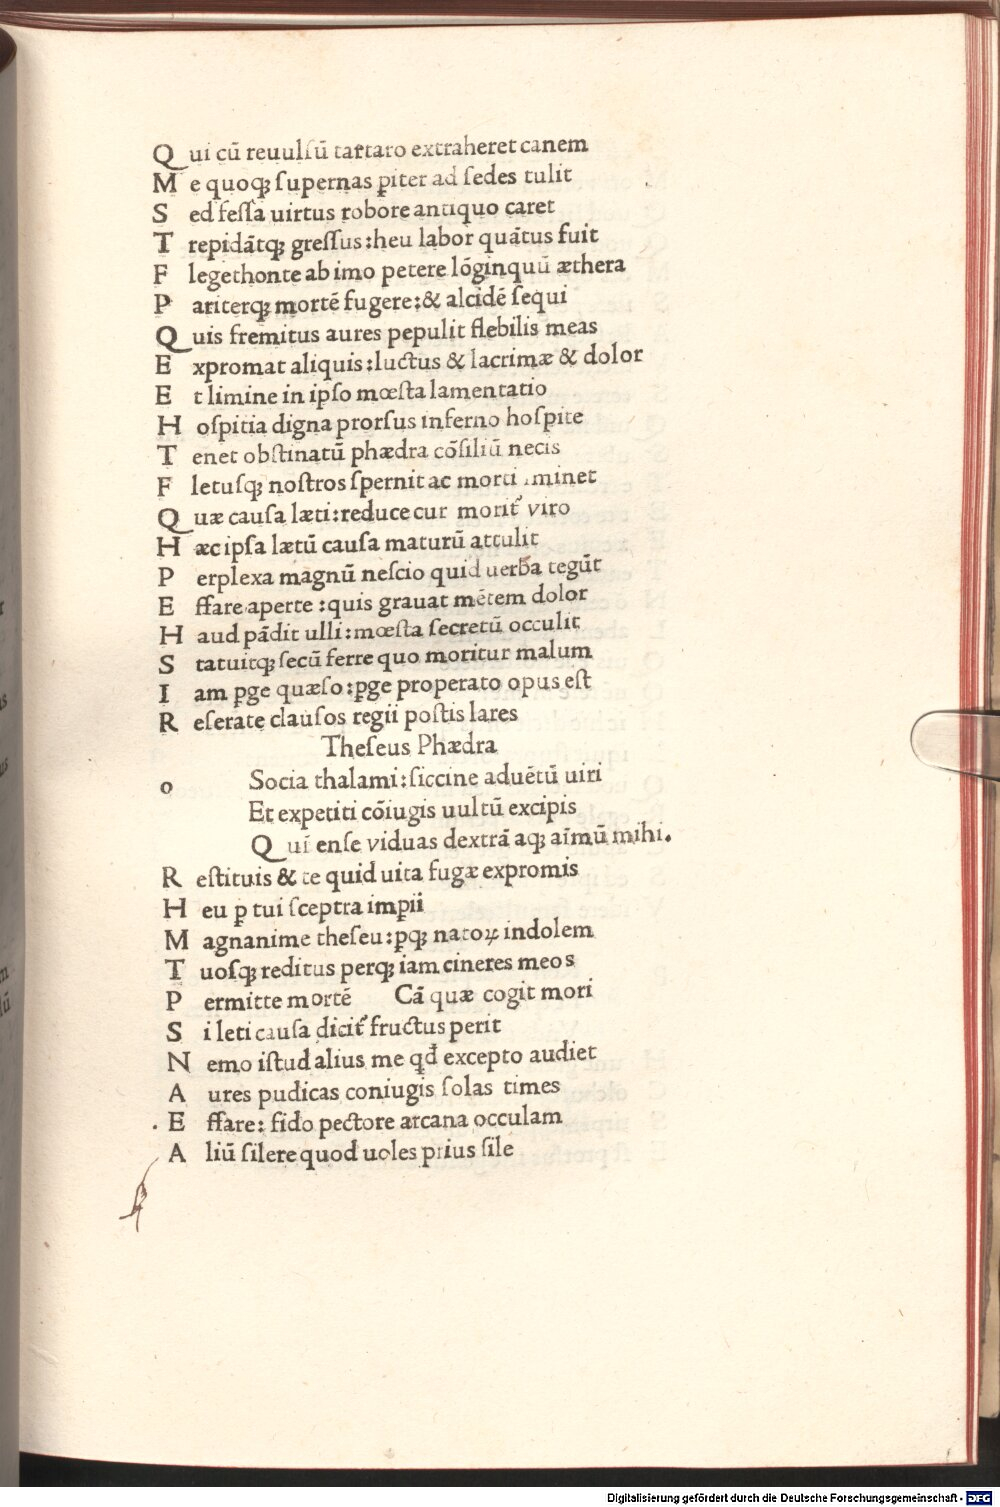 Qui cū reuulſū tartaro extraheret canem
Me quoqꝫ ſupernas ꝑiter ad ſedes tulit
Sed feſſa uirtus robore antiquo caret
Trepidātqꝫ greſſus: heu labor quātus fuit
Flegethonte ab imo petere lōginquū æthera
Pariterqꝫ mortē fugere: & alcidē ſequi
Quis fremitus aures pepulit flebilis meas
Expromat aliquis: luctus & lacrimæ & dolor
Et limine in ipſo mœſta lamentatio
Hoſpitia digna prorſus inferno hoſpite
Tenet obſtinatū phædra cōſiliū necis
Fletuſqꝫ noſtros ſpernit ac morti iminet
Quæ cauſa læti: reduce cur morit᷑ viro
Hæc ipſa lætū cauſa maturū attulit
Perplexa magnū neſcio quid uerba tegūt
Effare aperte: quis grauat mētem dolor
Haud pādit ulli: mœſta ſecretū occulit
Statuitqꝫ ſecū ferre quo moritur malum
Iam ꝑge quæſo: ꝑge properato opus eſt
Reſerate clauſos regii poſtis lares
Theſeus Phædra
o Socia thalami: ſiccine aduētū uiri
Et expetiti cōiugis uultū excipis
Qui enſe viduas dextrā aqꝫ aīmū mihi.
Reſtituis & te quid uita fugæ expromis
Heu ꝑ tui ſceptra impii
Magnanime theſeu: ꝑqꝫ natoꝝ indolem
Tuoſqꝫ reditus perqꝫ iam cineres meos
Permitte mortē Cā quæ cogit mori
Si leti cauſa dicit᷑ fructus perit
Nemo iſtud alius me qđ excepto audiet
Aures pudicas coniugis ſolas times
Effare: fido pectore arcana occulam
Aliū ſilere quod uoles prius ſile
Digitalisierung gefördert durch die Deutsche Forschungsgemeinschaft - DFG